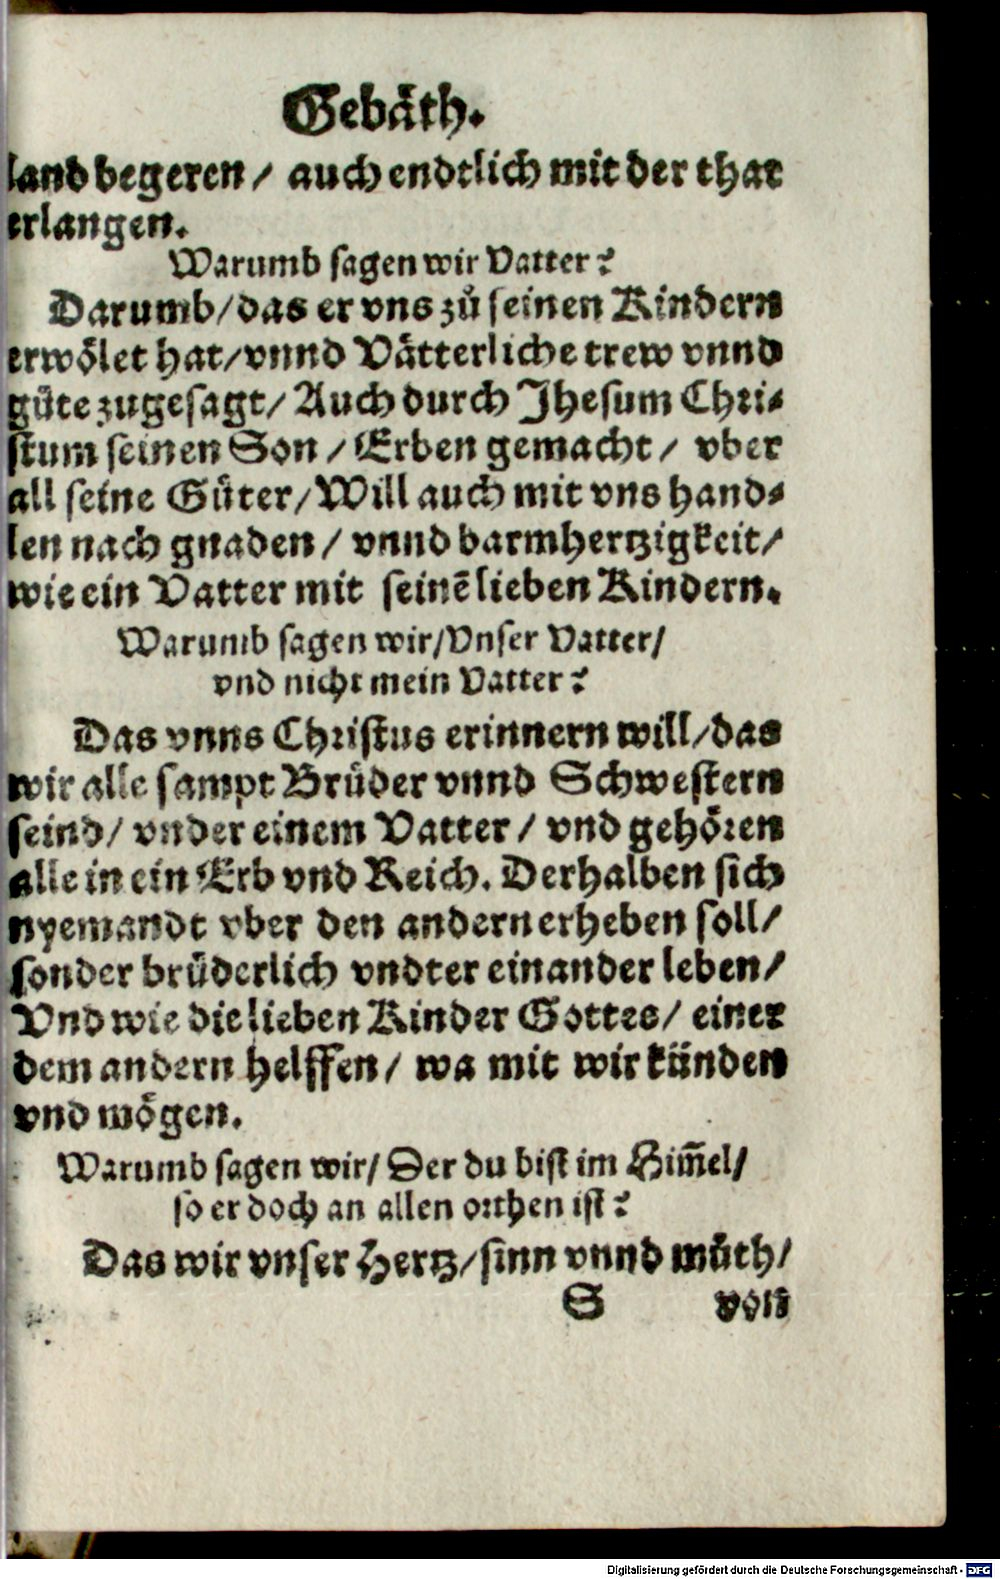 Gebäth.
land begeren / auch endtlich mit der that
erlangen.
Warumb sagen wir Vatter?
Darumb/das er vns zů seinen Kindern
erwölet hat/vnnd Vätterliche trew vnnd
güte zugesagt/ Auch durch Jhesum Chri-
stum seinen Son / Erben gemacht / vber
all seine Güter/Will auch mit vns hand-
len nach gnaden / vnnd barmhertzigkeit/
wie ein Vatter mit seinē lieben Kindern.
Warumb sagen wir/Vnser Vatter/
vnd nicht mein Vatter?
Das vnns Christus erinnern will/das
wir alle sampt Brüder vnnd Schwestern
seind/ vnder einem Vatter / vnd gehören
alle in ein Erb vnd Reich. Derhalben sich
nyemandt vber den andern erheben soll/
sonder brüderlich vndter einander leben/
Vnd wie die lieben Kinder Gottes/ einer
dem andern helffen/ wa mit wir künden
vnd mögen.
Warumb sagen wir/ Der du bist im Him̄el/
so er doch an allen orthen ist?
Das wir vnser Hertz/sinn vnnd můth/
S von
Digitalisierung gefördert durch die Deutsche Forschungsgemeinschaft - DFG